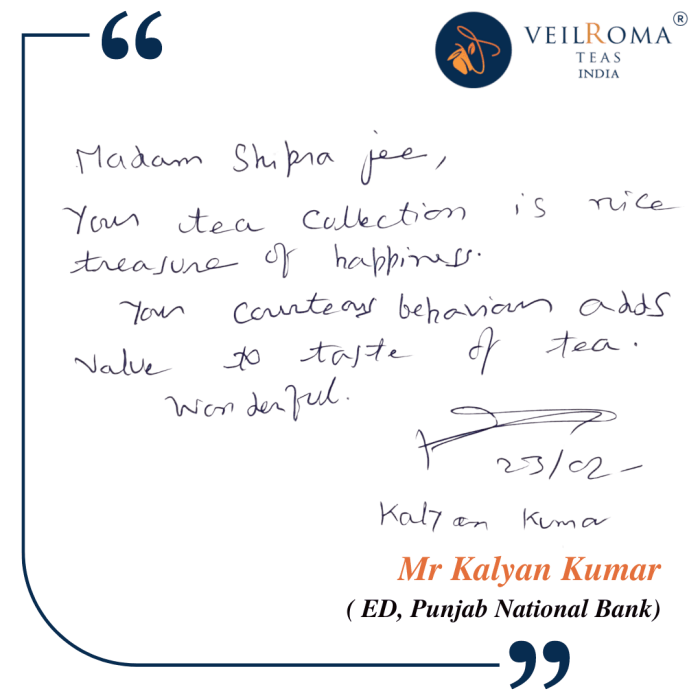 VEILROMA®
TEAS
INDIA
Madam Shipra jee,
Your tea collection is nice
treasure of happiness.
Your courteous behaviour adds
value to taste of tea.
Wonderful.
23/02 -
Kalyan Kumar
Mr Kalyan Kumar
( ED, Punjab National Bank)